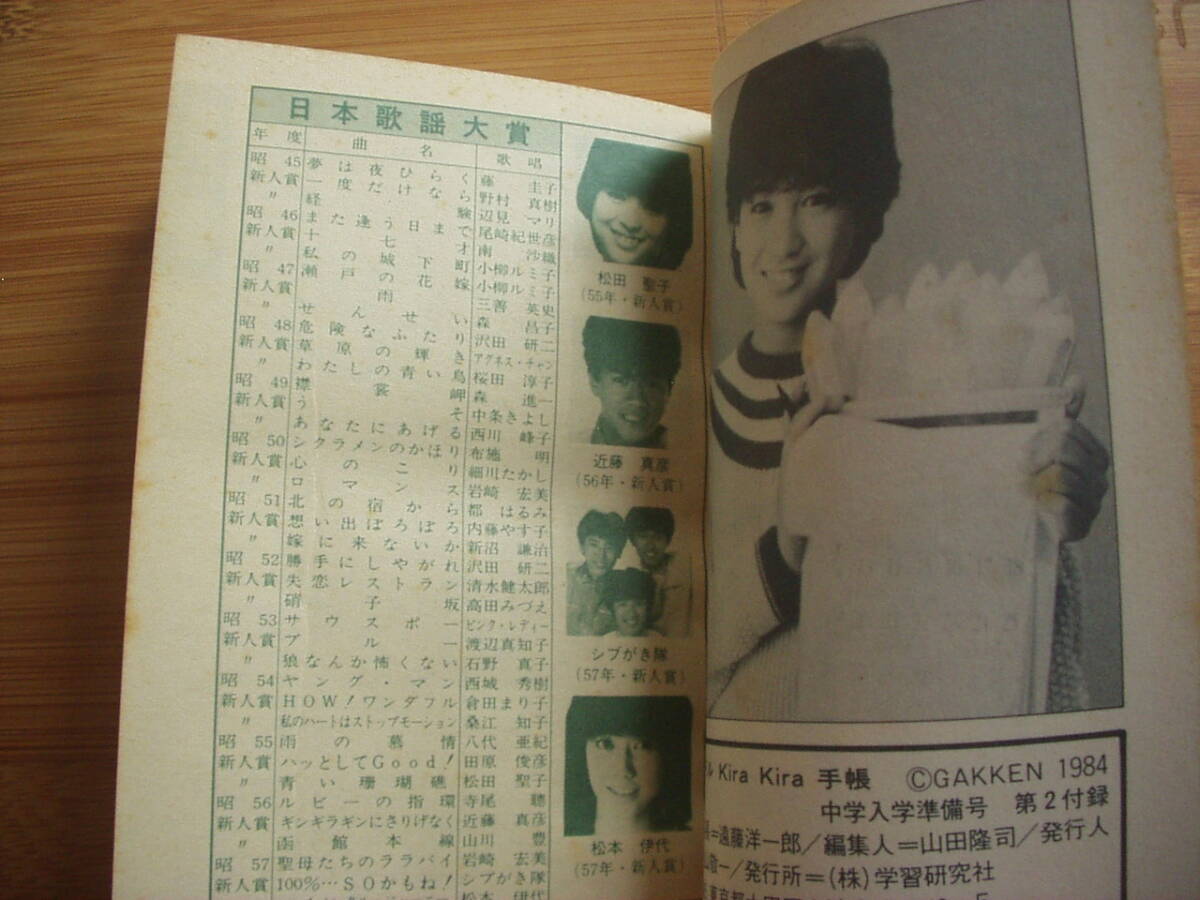 日本歌謡大賞
年度 曲名 歌唱
昭45 夢は夜ひらく 藤圭子
新人賞 一度だけなら 野村真樹
〃 経験 辺見マリ
昭46 また逢う日まで 尾崎紀世彦
新人賞 十七才 南沙織
〃 私の城下町 小柳ルミ子
昭47 瀬戸の花嫁 小柳ルミ子
新人賞 雨 三善英史
〃 せんせい 森昌子
昭48 危険なふたり 沢田研二
新人賞 草原の輝き アグネス・チャン
〃 わたしの青い鳥 桜田淳子
昭49 襟裳岬 森進一
新人賞 うそ 中条きよし
〃 あなたにあげる 西川峰子
昭50 シクラメンのかほり 布施明
新人賞 心のこり 細川たかし
〃 ロマンス 岩崎宏美
昭51 北の宿から 都はるみ
新人賞 想い出ぼろぼろ 内藤やす子
〃 嫁に来ないか 新沼謙治
昭52 勝手にしやがれ 沢田研二
新人賞 失恋レストラン 清水健太郎
〃 硝子坂 高田みづえ
昭53 サウスポー ピンク・レディー
新人賞 ブルー 渡辺真知子
〃 狼なんか怖くない 石野真子
昭54 ヤング・マン 西城秀樹
新人賞 HOW!ワンダフル 倉田まり子
〃 私のハートはストップモーション 桑江知子
昭55 雨の慕情 八代亜紀
新人賞 ハッとしてGood! 田原俊彦
〃 青い珊瑚礁 松田聖子
昭56 ルビーの指環 寺尾聰
新人賞 ギンギラギンにさりげなく 近藤真彦
〃 函館本線 山川豊
昭57 聖母たちのララバイ 岩崎宏美
新人賞 100%…SOかもね! シブがき隊
松本伊代
松田聖子
(55年・新人賞)
近藤真彦
(56年・新人賞)
シブがき隊
(57年・新人賞)
松本伊代
(57年・新人賞)
ル Kira Kira 手帳 ©GAKKEN 1984
中学入学準備号 第2付録
=遠藤洋一郎/編集人=山田隆司/発行人
一/発行所=(株)学習研究社